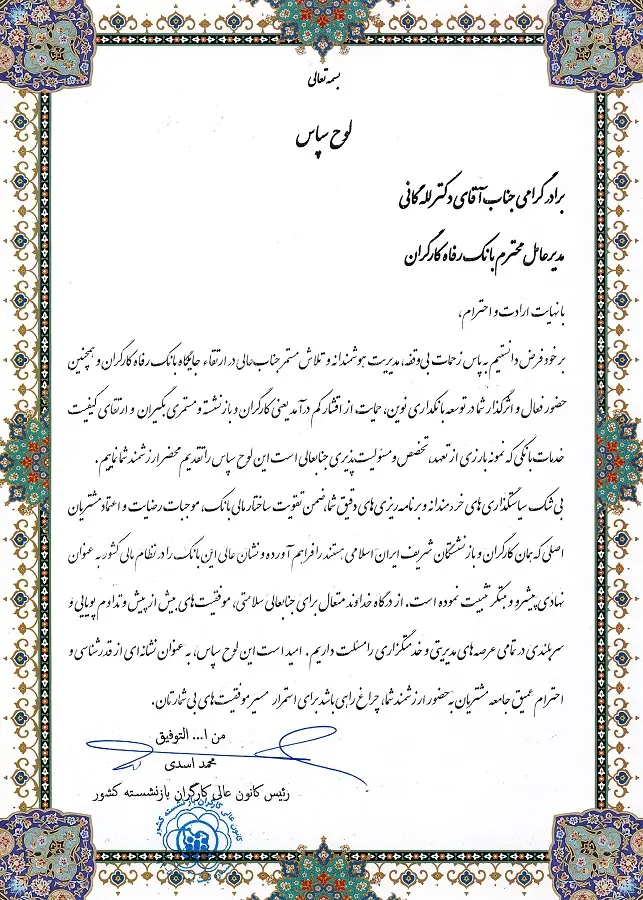 بسمه تعالی
لوح سپاس
برادر گرامی جناب آقای دکتر لله گانی
مدیرعامل محترم بانک رفاه کارگران
با نهایت ارادت و احترام،
بر خود فرض دانستیم به پاس زحمات بی‌وقفه، مدیریت هوشمندانه و تلاش مستمر جناب عالی در ارتقاء جایگاه بانک رفاه کارگران و همچنین
حضور فعال و اثرگذار شما در توسعه بانکداری نوین، حمایت از اقشار کم درآمد یعنی کارگران و بازنشسته و مستمری بگیران و ارتقای کیفیت
خدمات بانکی که نمونه بارزی از تعهد، تخصص و مسئولیت پذیری جنابعالی است این لوح سپاس را تقدیم محضر ارزشمند شما نماییم.
بی شک سیاستگذاری های خردمندانه و برنامه ریزی های دقیق شما، ضمن تقویت ساختار مالی بانک، موجبات رضایت و اعتماد مشتریان
اصلی که همان کارگران و بازنشستگان شریف ایران اسلامی هستند را فراهم آورده و نشان عالی این بانک را در نظام مالی کشور به عنوان
نهادی پیشرو و مبتکر تثبیت نموده است. از درگاه خداوند متعال برای جنابعالی سلامتی، موفقیت‌های بیش از پیش و تداوم پویایی و
سربلندی در تمامی عرصه های مدیریتی و خدمتگزاری را مسئلت داریم. امید است این لوح سپاس، به عنوان نشانه ای از قدرشناسی و
احترام عمیق جامعه مشتریان به حضور ارزشمند شما، چراغ راهی باشد برای استمرار مسیر موفقیت های بی شمارتان.
من ا... التوفیق
محمد اسدی
رئیس کانون عالی کارگران بازنشسته کشور
کانون عالی کارگران بازنشسته کشور